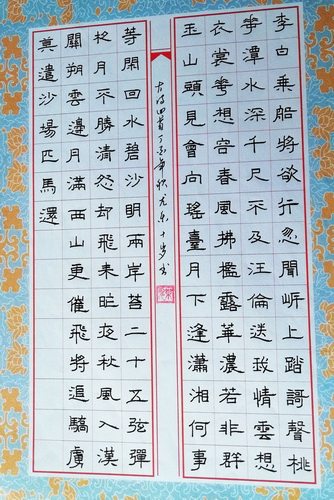 李白乘船將欲行忽聞岸上踏謌聲桃
花潭水深千尺不及汪倫送我情雲想
衣裳花想容春風拂檻露華濃若非群
玉山頭見會向瑤臺月下逢瀟湘何事
古詩四首丁酉年秋 十歲書
等閑回水碧沙明兩岸苔二十五弦彈
夜月不勝清怨却飛來昨夜秋風入漢
關朔雲邊月滿西山更催飛將追驕虜
莫遣沙場匹馬還